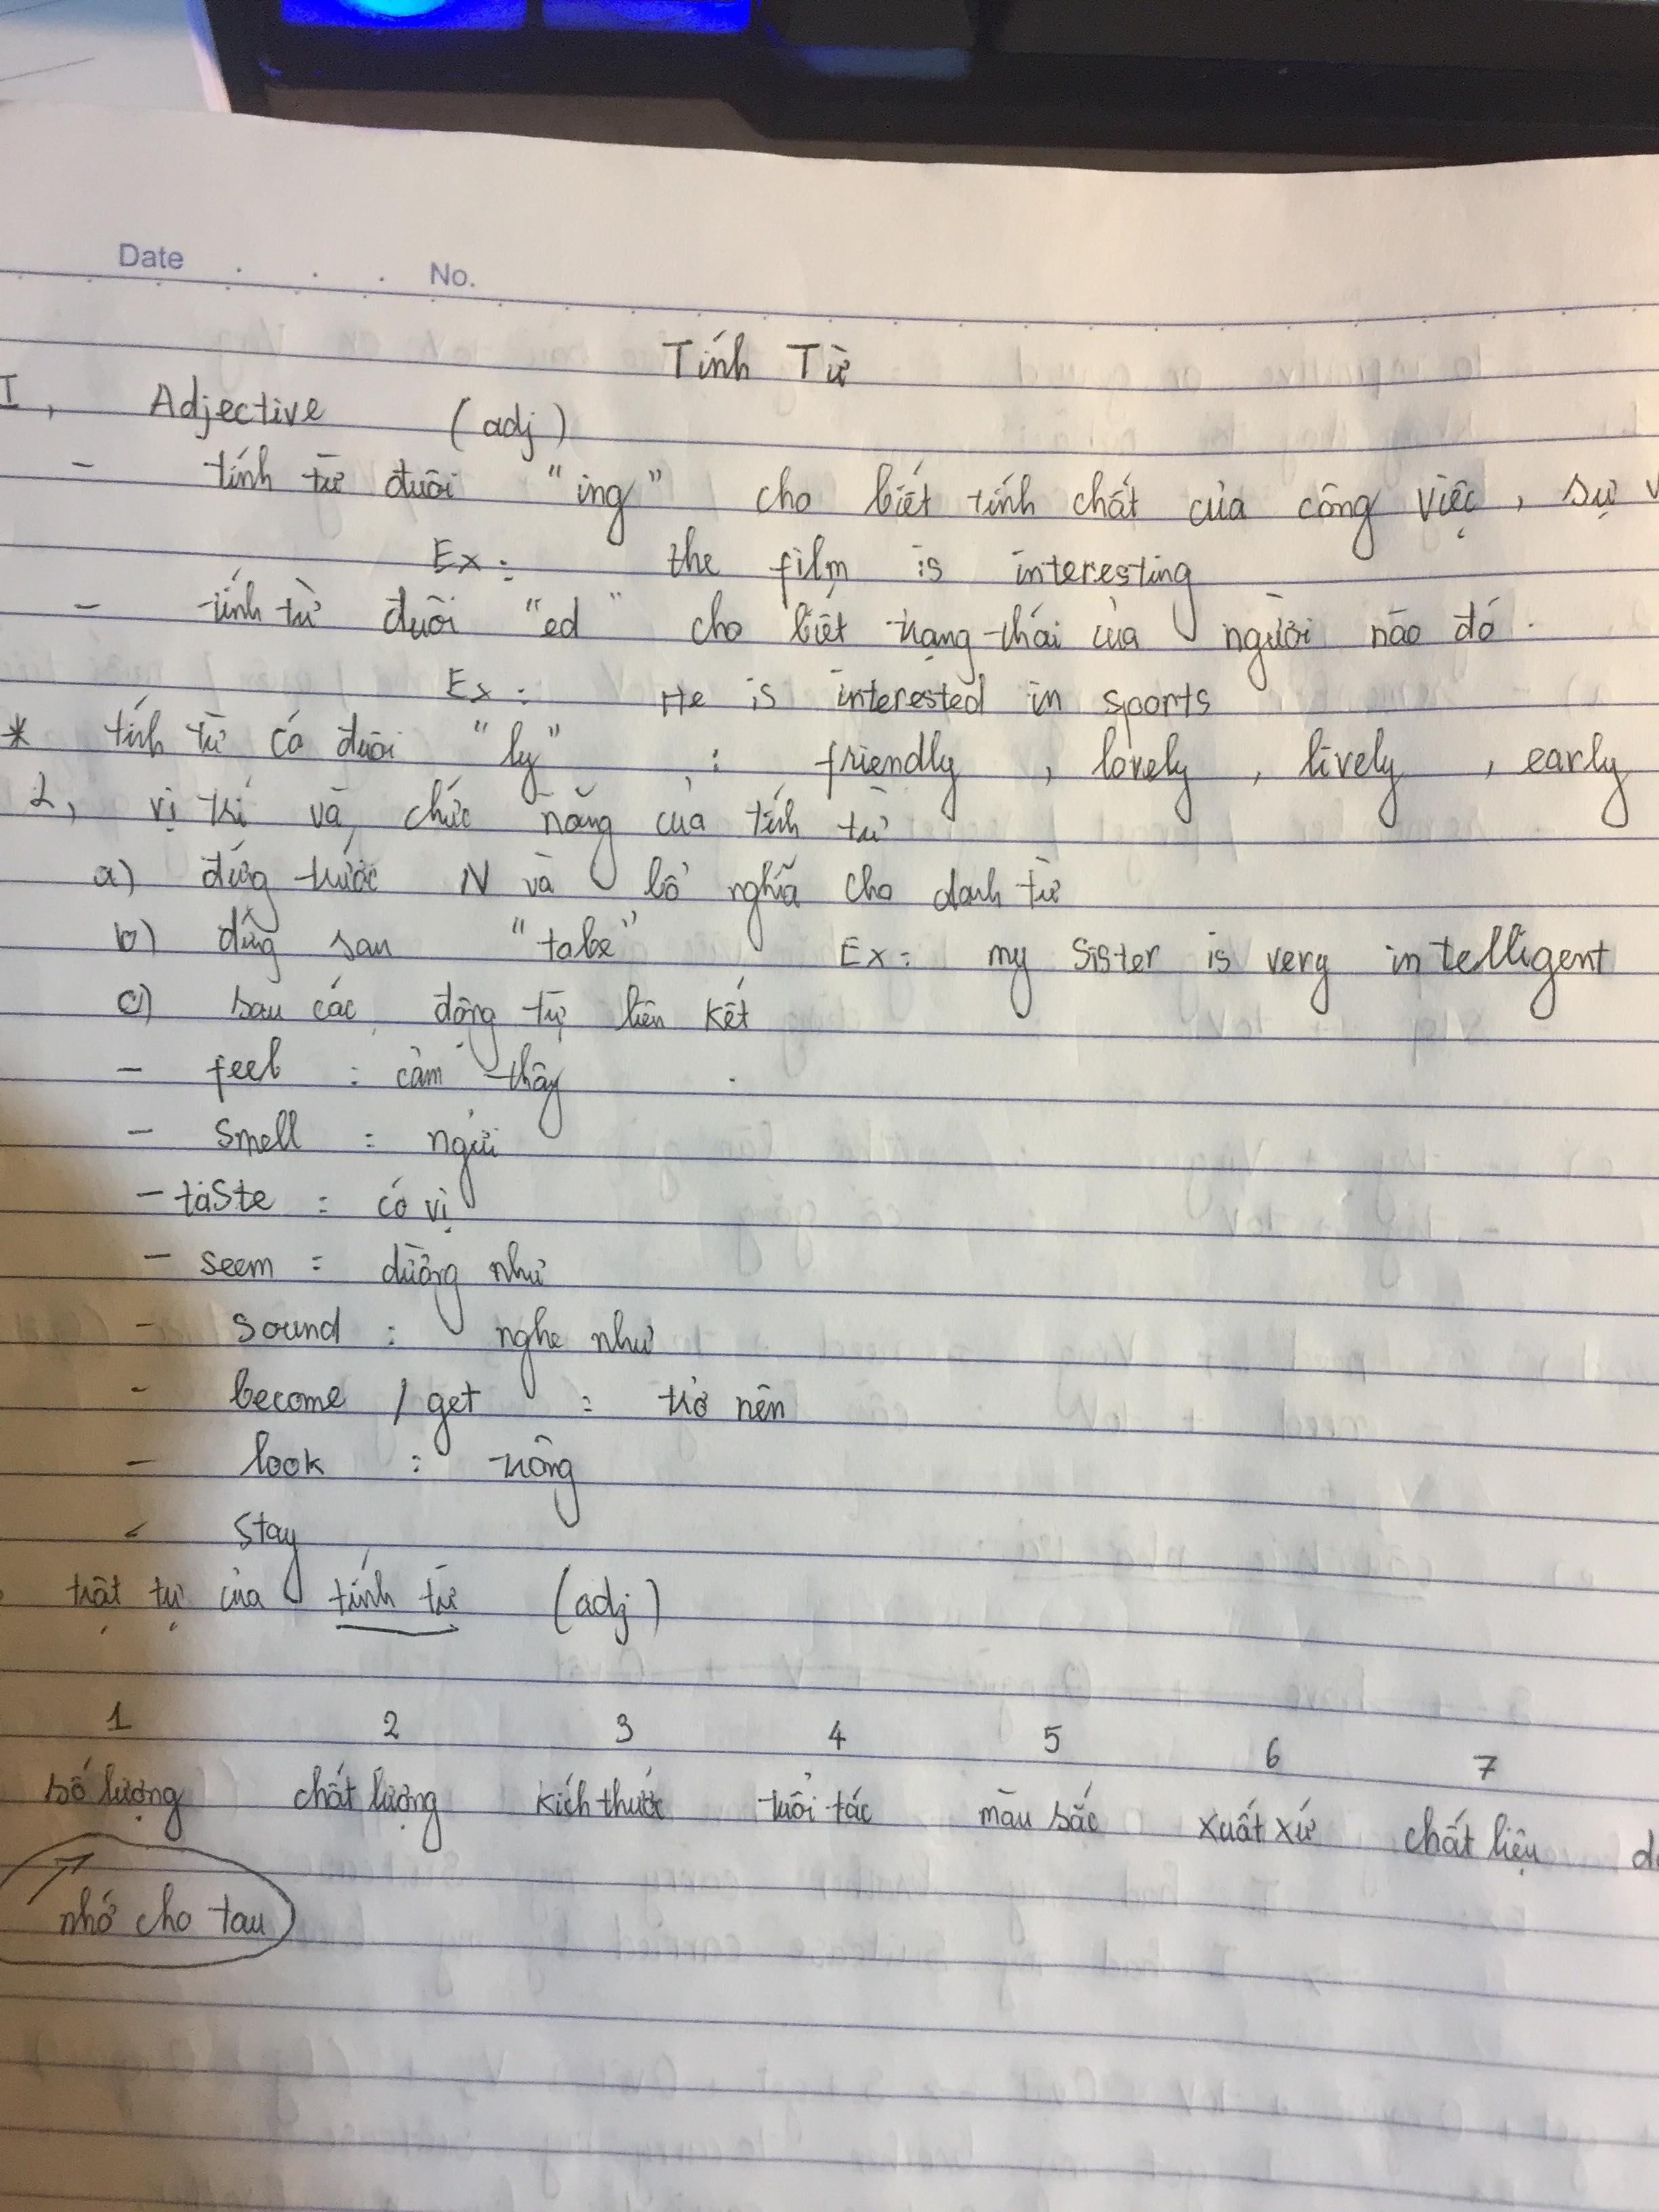 Date No.
Tính Từ
I, Adjective (adj)
- tính từ đuôi "ing" cho biết tính chất của công việc, sự
Ex: the film is interesting
- tính từ đuôi "ed" cho biết trạng thái của người nào đó.
Ex: He is interested in sports
* tính từ có đuôi "ly" : friendly, lovely, lively, early
2, vị trí và chức năng của tính từ
a) đứng trước N và bổ nghĩa cho danh từ
b) đứng sau "tobe" Ex: my sister is very intelligent
c) sau các động từ liên kết
- feel : cảm thấy
- smell : ngửi
- taste : có vị
- seem : dường như
- sound : nghe như
- become / get : trở nên
- look : trông
- stay
trật tự của tính từ (adj)
1 2 3 4 5 6 7
số lượng chất lượng kích thước tuổi tác màu sắc xuất xứ chất liệu
nhớ cho tau